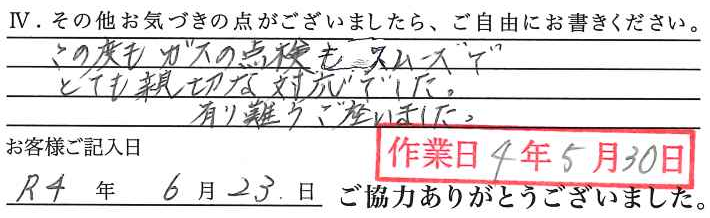 Ⅳ．その他お気づきの点がございましたら、ご自由にお書きください。
この度も ガスの点検も スムーズで
とても親切な対応でした。
有り難うご座いました。
お客様ご記入日
作業日 4年5月30日
R4 年 6 月 23. 日 ご協力ありがとうございました。